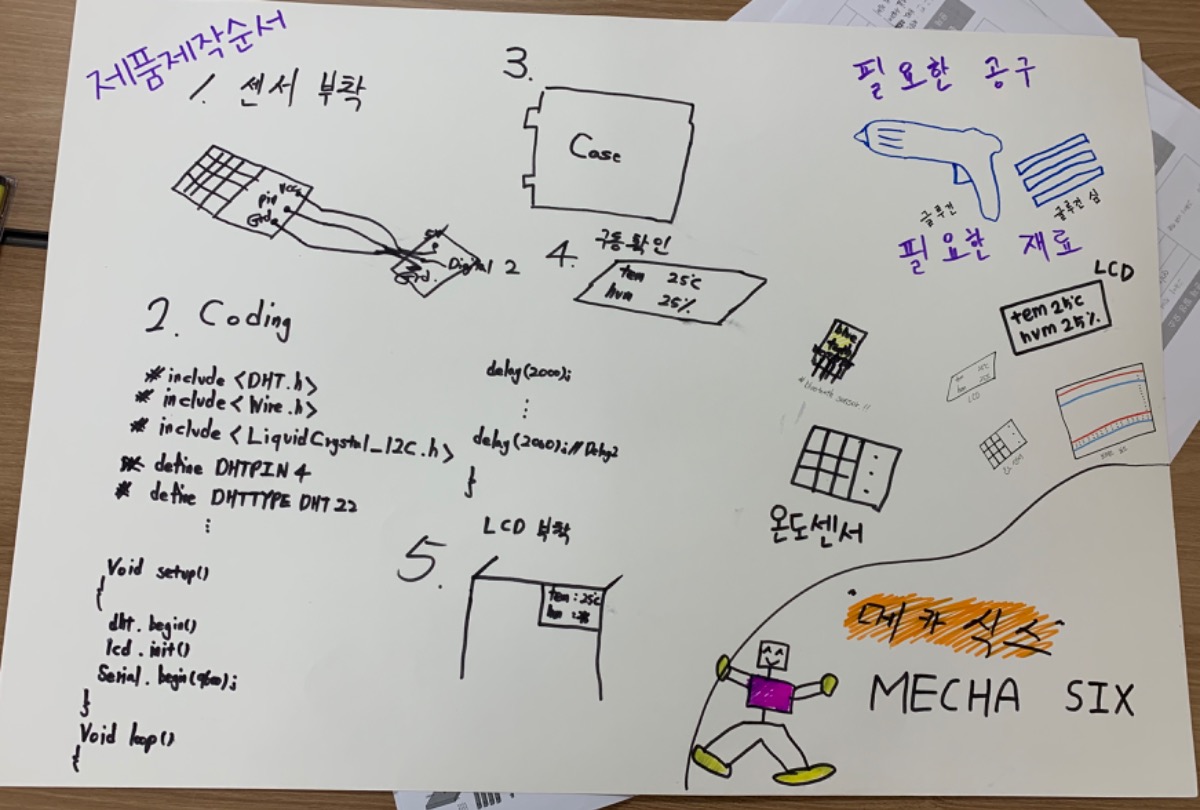 제품제작순서
1. 센서 부착
Vcc
pin
Gnd
5V
Digital 2
Gnd.
2. Coding
# include <DHT.h>
# include <Wire.h>
# include <LiquidCrystal_I2C.h>
# define DHTPIN 4
# define DHTTYPE DHT22
⋮
Void setup()
{
dht.begin()
lcd.init()
Serial.begin(9600);
}
Void loop()
{
delay(2000);
⋮
delay(2000);//Delay2
}
3.
Case
4. 구동확인
tem 25℃
hum 25%
5. LCD 부착
tem : 25℃
필요한 공구
글루건
글루건 심
필요한 재료
LCD
tem 25℃
hum 25%
blue
tooth
# bluetooth sensor !!
LCD
온도센서
메카식스
MECHA SIX